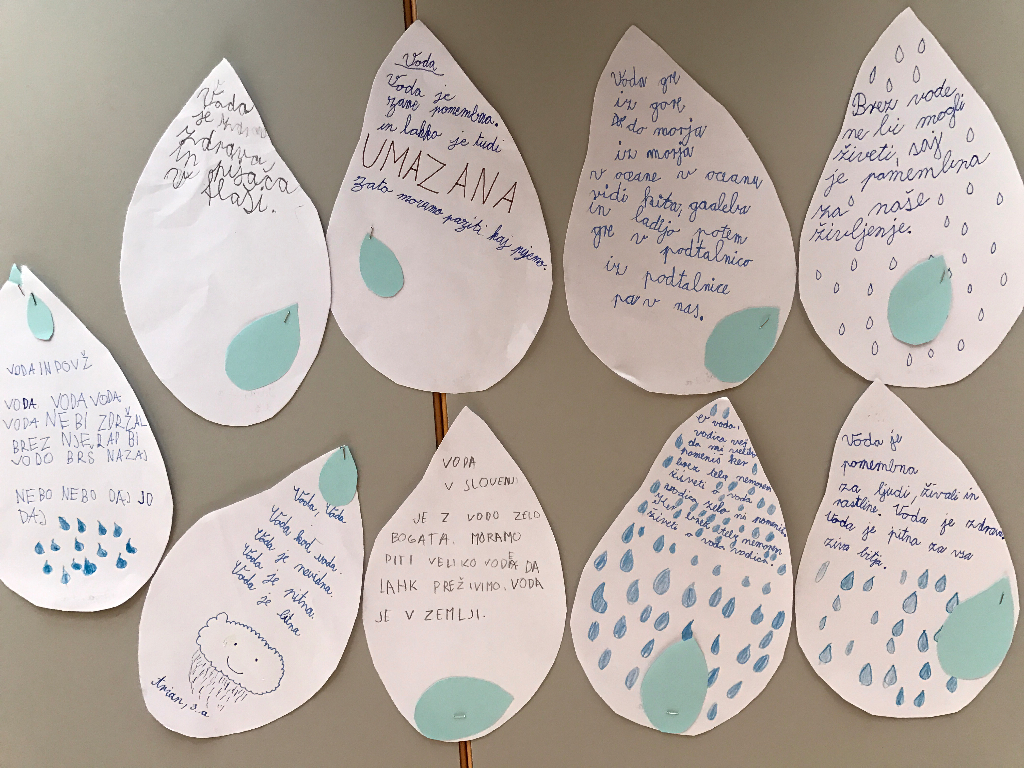 Voda
je
zdrava
in
pijača
v flaši.
Voda
Voda je
zame pomembna.
in lahko je tudi
UMAZANA
Zato moramo paziti kaj pijemo.
Voda gre
iz gore
do morja
iz morja
v oceane v oceanu
vidi kita, galeba
in ladjo potem
gre v podtalnico
iz podtalnice
pa v nas.
Brez vode
ne bi mogli
živeti, saj
je pomembna
za naše
življenje.
VODA IN POVŽ
VODA VODA VODA
VODA NE BI ZDRŽAL
BREZ NJE RAD BI
VODO BRŠ NAZAJ
NEBO NEBO DAJ JO
DAJ
Voda, Voda
Voda kot voda.
Voda je nevidna
Voda je pitna.
Voda je bitna
Arian, 3.a
VODA
V SLOVENI
JE Z VODO ZELO
BOGATA. MORAMO
PITI VELIKO VODE DA
LAHK PREŽIVIMO. VODA
JE V ZEMLJI.
O voda,
vodica vej
da mi veliko
pomeniš ker
brez tebe nemorem
živeti o voda
vodica zelo mi pomeniš
ker brez tebe nemorem
živeti o voda vodica.
Voda je
pomembna
za ljudi, živali in
rastline. Voda je zdrava
Voda je pitna za vsa
živa bitja.